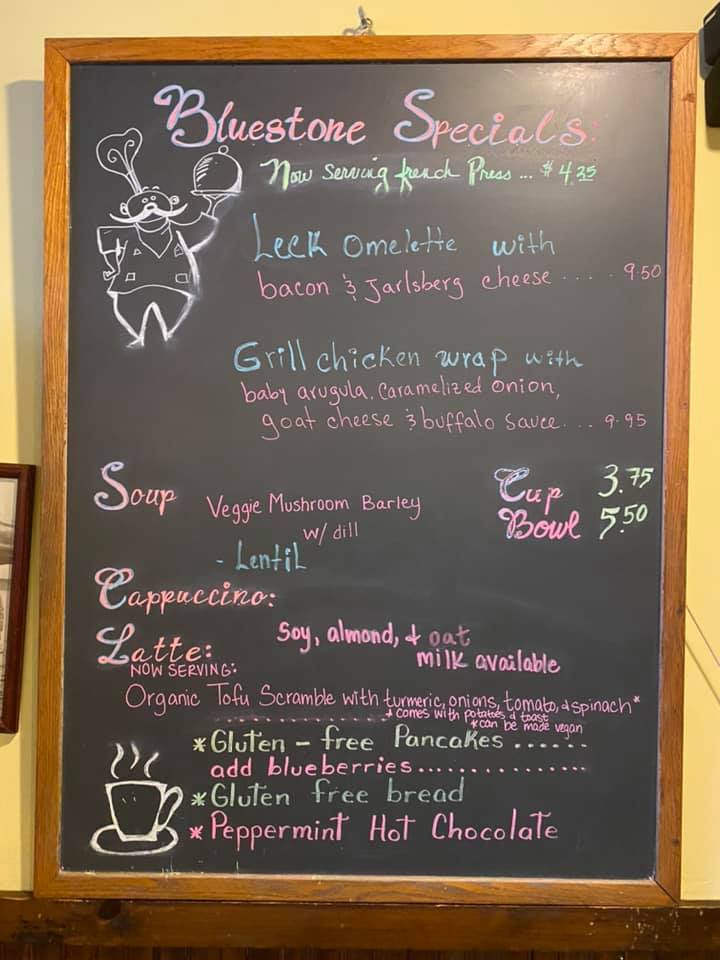 Bluestone Specials:
Now serving french Press ... $4.25
Leek omelette with
bacon & Jarlsberg cheese ..... 9.50
Grill chicken wrap with
baby arugula, caramelized onion,
goat cheese & buffalo sauce.... 9.95
Soup Veggie Mushroom Barley
w/ dill
- Lentil
Cup 3.75
Bowl 5.50
Cappuccino:
Latte: Soy, almond, & oat
milk available
NOW SERVING:
Organic Tofu Scramble with turmeric, onions, tomato, & spinach*
* comes with potatoes & toast
*can be made vegan
*Gluten-free Pancakes ......
add blueberries...............
*Gluten free bread
*Peppermint Hot Chocolate